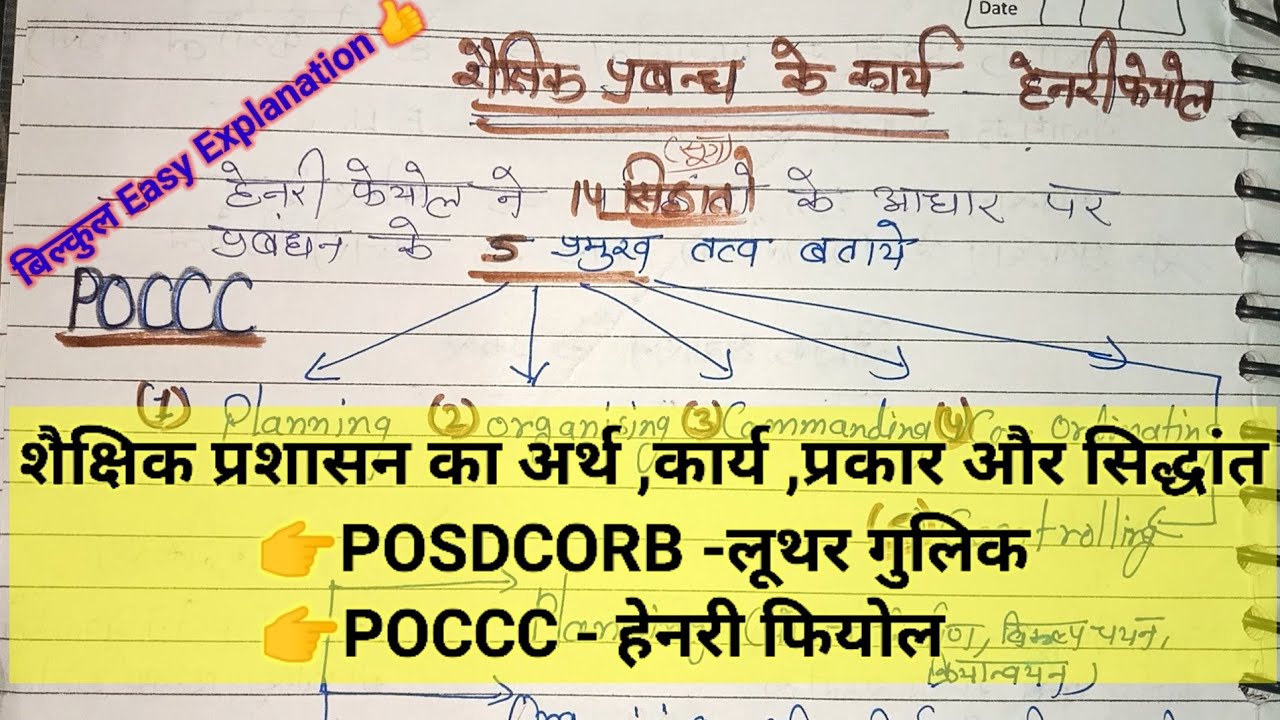 Date
बिल्कुल Easy Explanation 👍
शैक्षिक प्रबन्ध के कार्य हेनरी फेयोल
(सूत्र)
हेनरी फेयोल ने 14 सिद्धांतो के आधार पर
प्रबंधन के 5 प्रमुख तत्व बताये
POCCC
(1) Planning (2) organising (3) Commanding (4) Co-ordinating
शैक्षिक प्रशासन का अर्थ ,कार्य ,प्रकार और सिद्धांत
👉POSDCORB -लूथर गुलिक
👉POCCC - हेनरी फियोल
Planning
विकल्प चयन,
क्रियान्वयन)